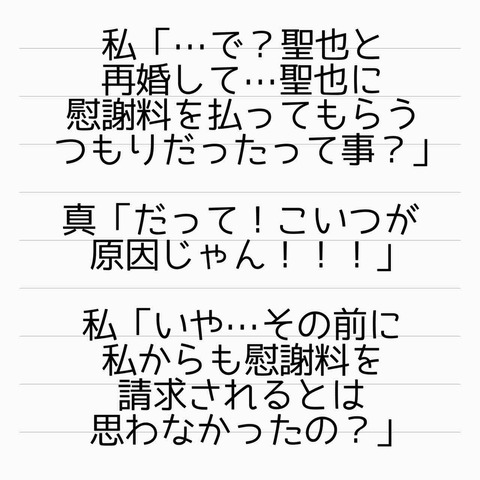 私「…で？聖也と
再婚して…聖也に
慰謝料を払ってもらう
つもりだったって事？」
真「だって！こいつが
原因じゃん！！！」
私「いや…その前に
私からも慰謝料を
請求されるとは
思わなかったの？」